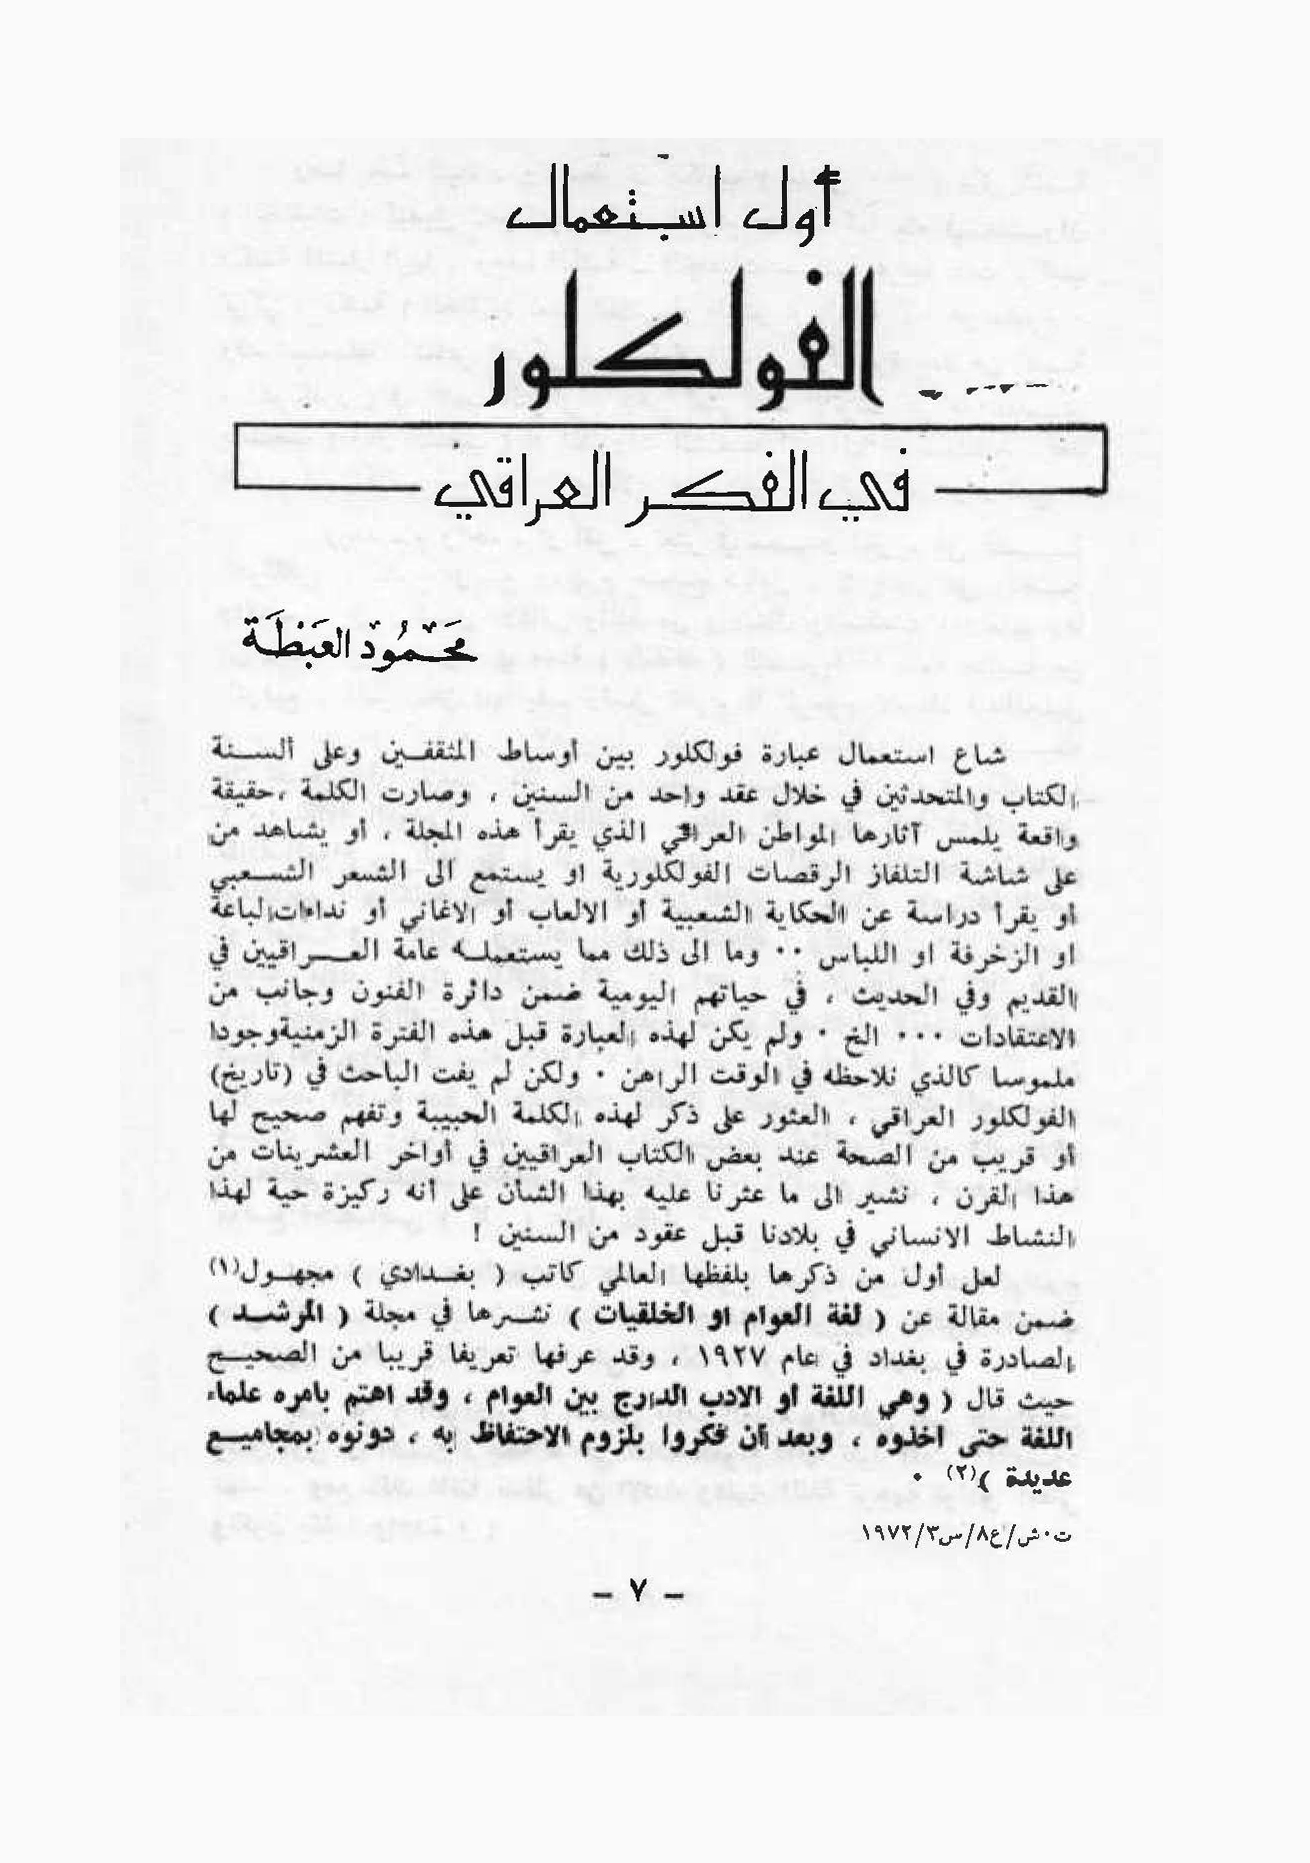 أول استعمال
الفولكلور
في الفكر العراقي
محمود العبطة
شاع استعمال عبارة فولكلور بين أوساط المثقفين وعلى ألسنة
الكتاب والمتحدثين في خلال عقد واحد من السنين ، وصارت الكلمة ،حقيقة
واقعة يلمس آثارها المواطن العراقي الذي يقرأ هذه المجلة ، أو يشاهد من
على شاشة التلفاز الرقصات الفولكلورية او يستمع الى الشعر الشعبي
أو يقرأ دراسة عن الحكاية الشعبية أو الالعاب أو الاغاني أو نداءات الباعة
او الزخرفة او اللباس ٠٠ وما الى ذلك مما يستعمله عامة العراقيين في
القديم وفي الحديث ، في حياتهم اليومية ضمن دائرة الفنون وجانب من
الاعتقادات ٠٠٠ الخ ٠ ولم يكن لهذه العبارة قبل هذه الفترة الزمنية وجودا
ملموسا كالذي نلاحظه في الوقت الراهن ٠ ولكن لم يفت الباحث في (تاريخ)
الفولكلور العراقي ، العثور على ذكر لهذه الكلمة الحبيبة وتفهم صحيح لها
أو قريب من الصحة عند بعض الكتاب العراقيين في أواخر العشرينات من
هذا القرن ، نشير الى ما عثرنا عليه بهذا الشأن على أنه ركيزة حية لهذا
النشاط الانساني في بلادنا قبل عقود من السنين !
لعل أول من ذكرها بلفظها العالمي كاتب ( بغدادي ) مجهول(١)
ضمن مقالة عن ( لغة العوام او الخلقيات ) نشرها في مجلة ( المرشد )
الصادرة في بغداد في عام ١٩٢٧ ، وقد عرفها تعريفا قريبا من الصحيح
حيث قال ( وهي اللغة أو الادب الدارج بين العوام ، وقد اهتم بامره علماء
اللغة حتى اخذوه ، وبعد أن فكروا بلزوم الاحتفاظ به ، دونوه بمجاميع
عديدة )(٢) ٠
ت٠ش/ع٨/س٣/١٩٧٢
– ٧ –